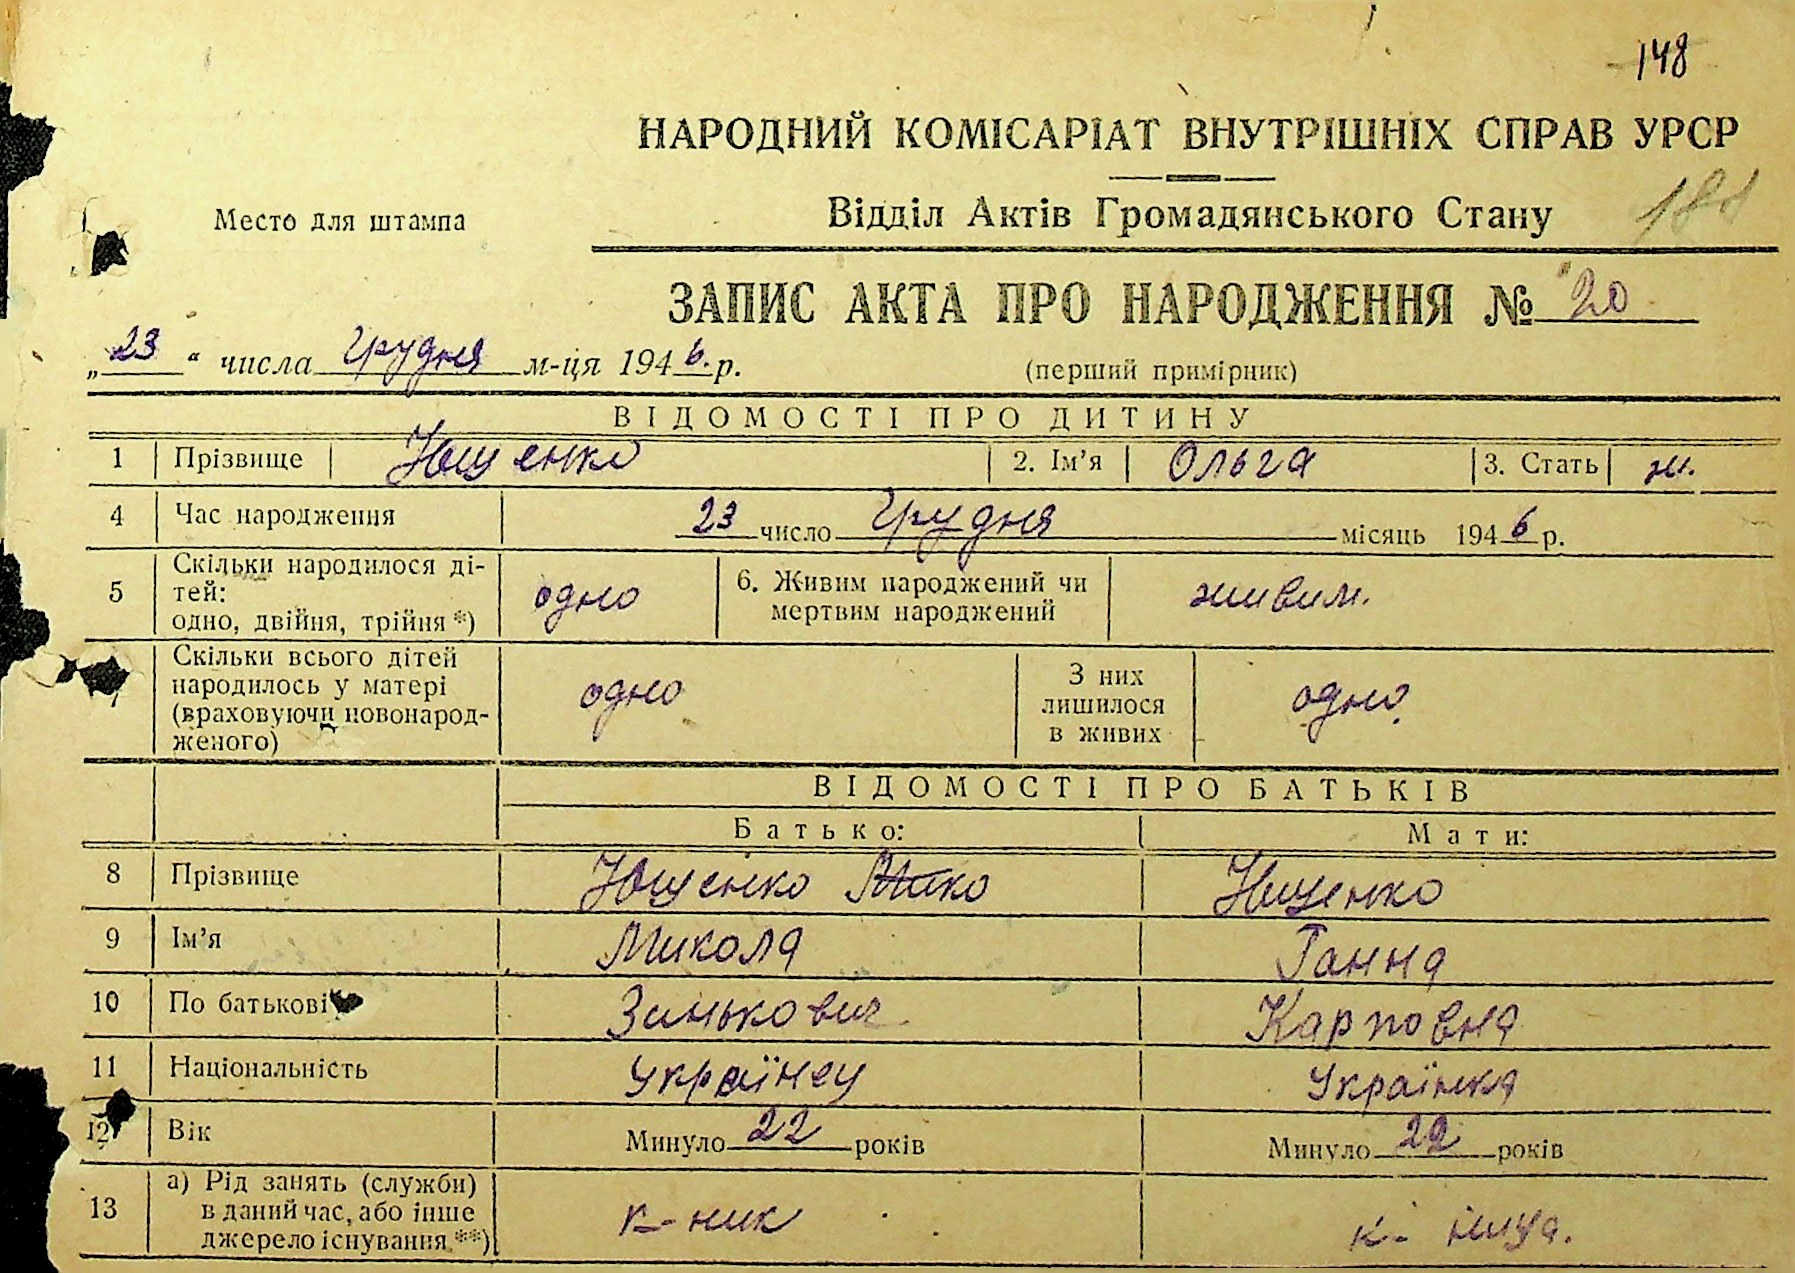 148
НАРОДНИЙ КОМІСАРІАТ ВНУТРІШНІХ СПРАВ УРСР
Место для штампа
Відділ Актів Громадянського Стану
ЗАПИС АКТА ПРО НАРОДЖЕННЯ № 20
„23“ числа грудня м-ця 1946.р.
(перший примірник)
ВІДОМОСТІ ПРО ДИТИНУ
1 Прізвище Ющенко 2. Ім'я Ольга 3. Стать ж.
4 Час народження 23 число Грудня місяць 1946 р.
5 Скільки народилося ді-
тей:
одно, двійня, трійня*) одно 6. Живим народжений чи
мертвим народжений живим.
7 Скільки всього дітей
народилось у матері
(враховуючи новонарод-
женого) одно З них
лишилося
в живих одно
ВІДОМОСТІ ПРО БАТЬКІВ
Батько: Мати:
8 Прізвище Ющенко Ющенко
9 Ім'я Микола Ганна
10 По батькові Зинькович Карповна
11 Національність українец Українка
12 Вік Минуло 22 років Минуло 22 років
13 а) Рід занять (служби)
в даний час, або інше
джерело існування**) к-ник к-ниця.